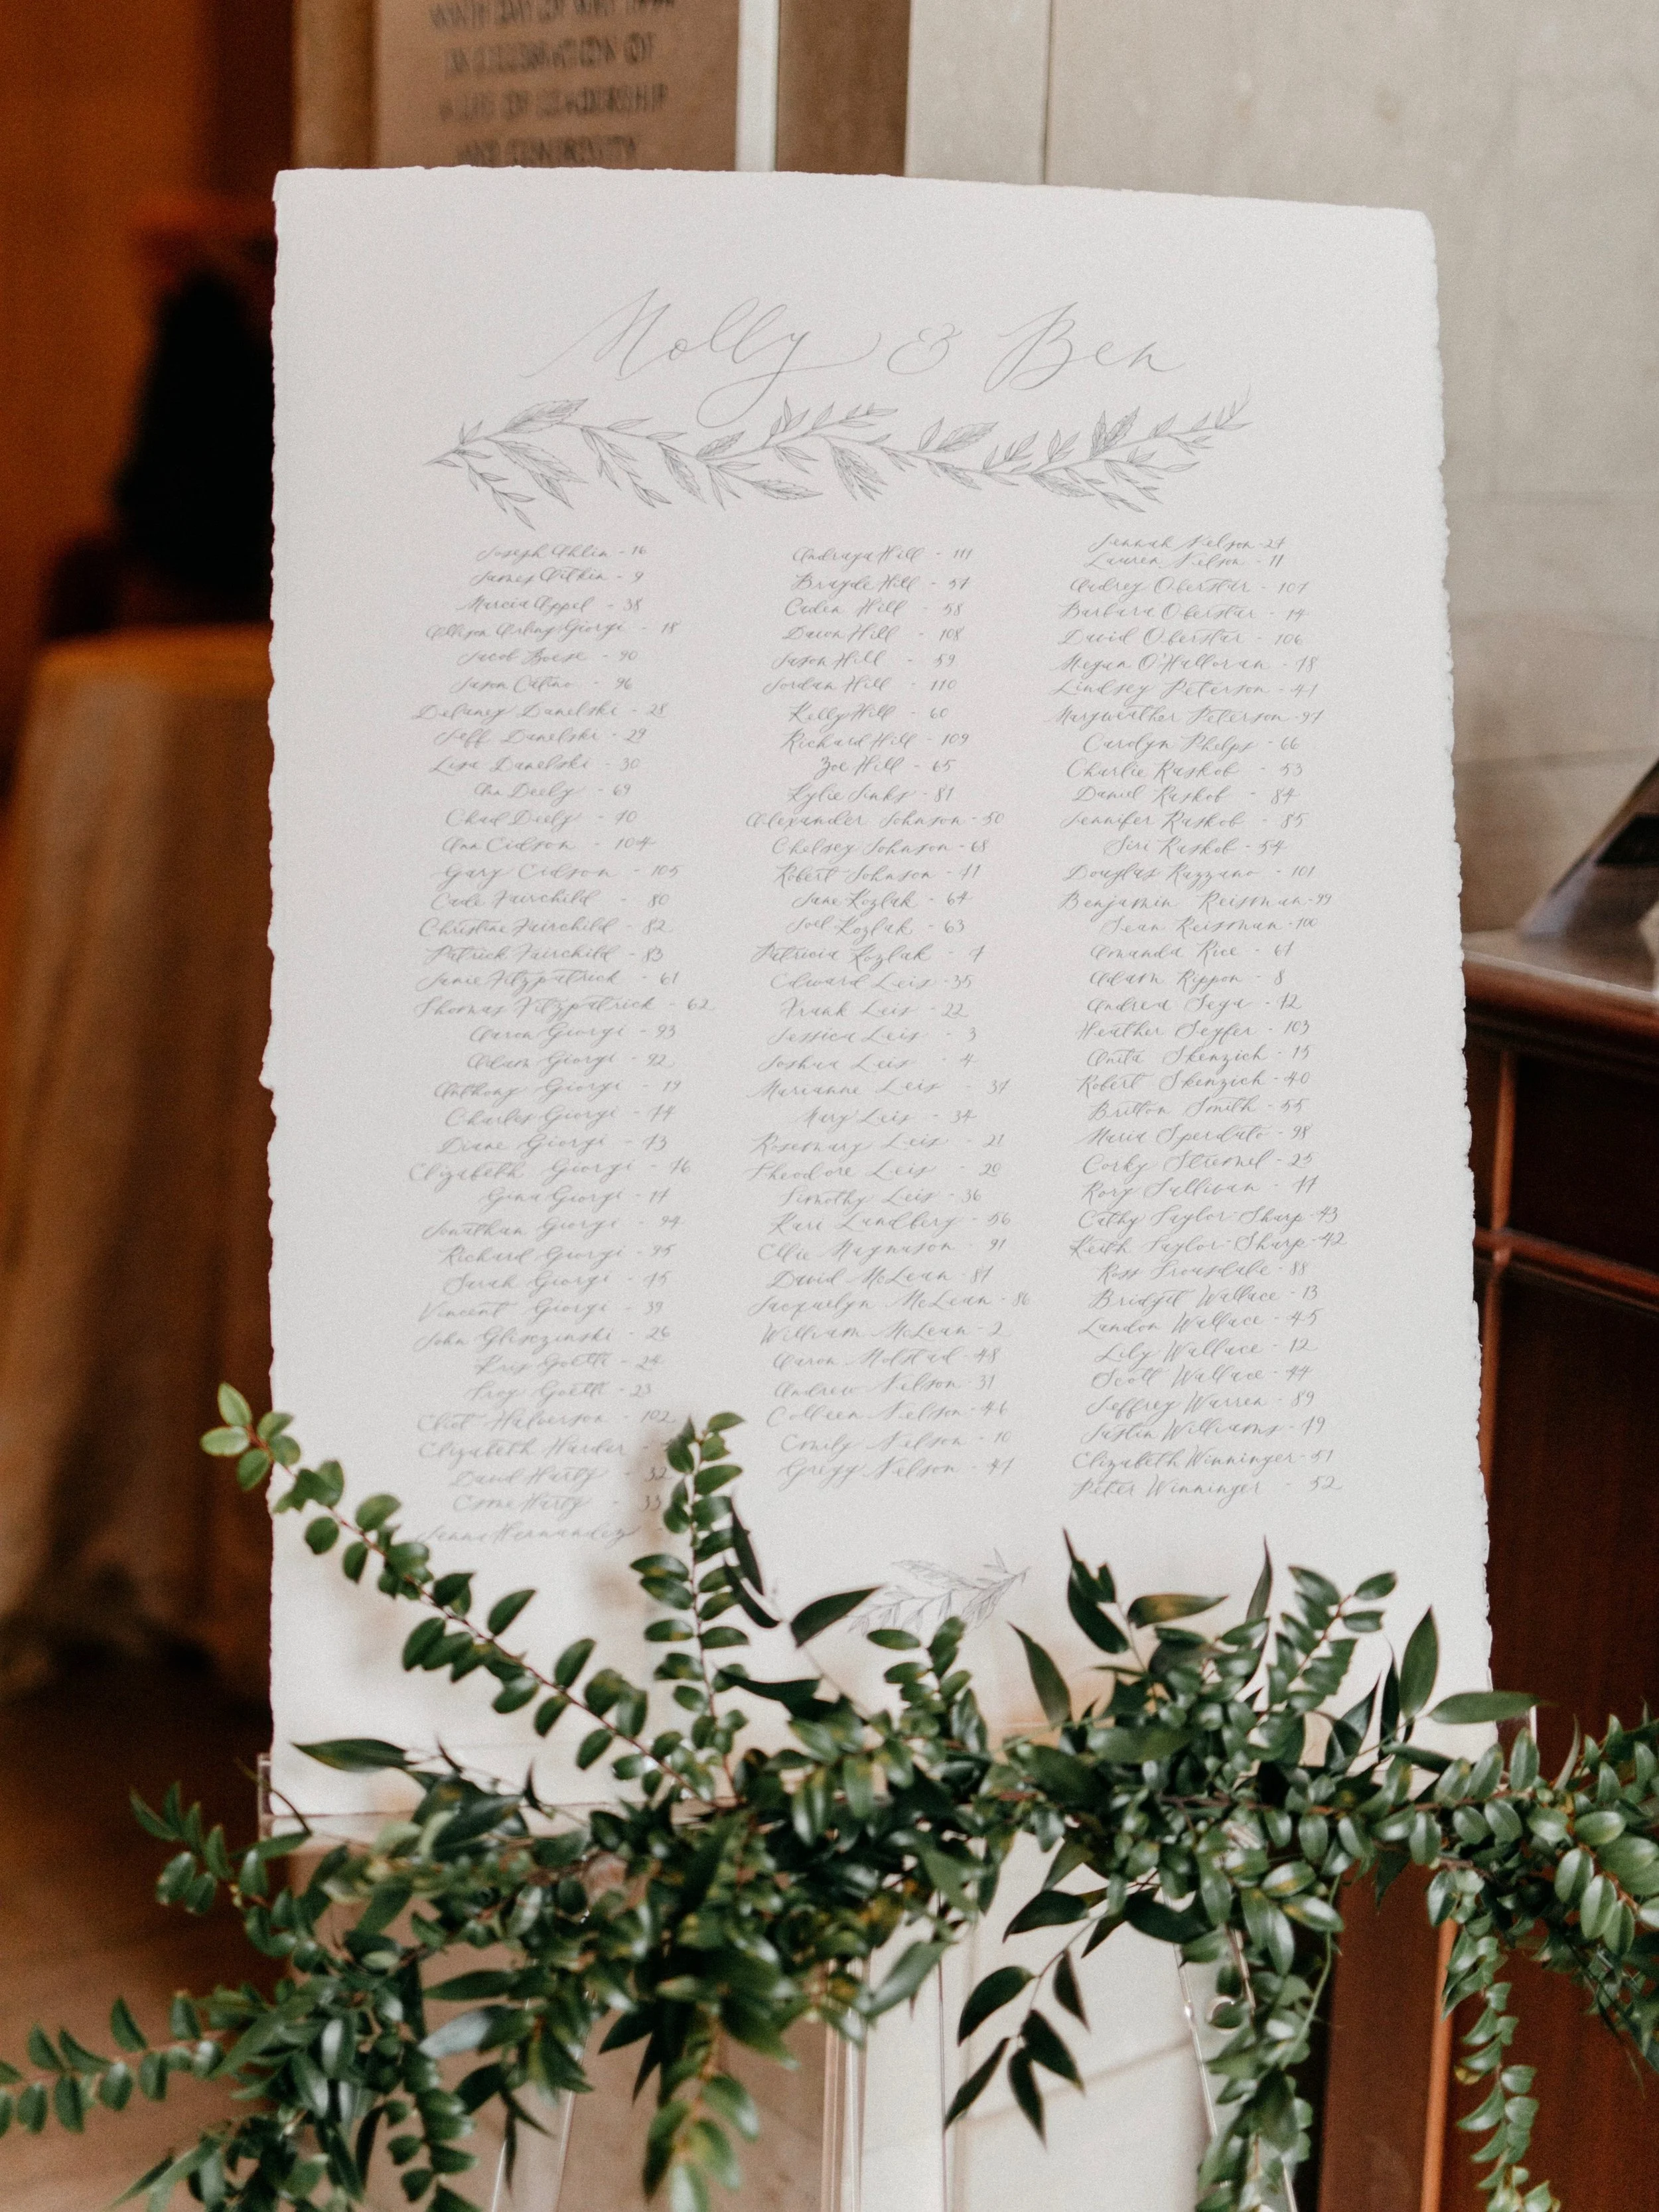 A LIFE OF LEADERSHIP
AND GENEROSITY
Molly & Ben
Joseph Ahlin - 16
James Aitkin - 9
Marcia Appel - 38
Allison Arling Giorgi - 18
Jacob Boese - 90
Jason Catino - 96
Delaney Danelski - 28
Jeff Danelski - 29
Lisa Danelski - 30
Ann Deely - 69
Chad Deely - 70
Ann Eidson - 104
Gary Eidson - 105
Cade Fairchild - 80
Christine Fairchild - 82
Patrick Fairchild - 83
Janie Fitzpatrick - 61
Thomas Fitzpatrick - 62
Aaron Giorgi - 93
Adam Giorgi - 92
Anthony Giorgi - 19
Charles Giorgi - 74
Diane Giorgi - 73
Elizabeth Giorgi - 76
Gina Giorgi - 17
Jonathan Giorgi - 94
Richard Giorgi - 95
Sarah Giorgi - 75
Vincent Giorgi - 39
John Gliszinski - 26
Kris Goetti - 24
Troy Goetti - 23
Eliot Halverson - 102
Elizabeth Harder -
David Harty - 32
Esme Harty - 33
Jenna Hernandez
Andraya Hill - 111
Brayde Hill - 57
Caden Hill - 58
Dawn Hill - 108
Jason Hill - 59
Jordan Hill - 110
Kelly Hill - 60
Richard Hill - 109
Zoe Hill - 65
Kylie Jinks - 81
Alexander Johnson - 50
Chelsey Johnson - 68
Robert Johnson - 71
Jane Kozlak - 64
Joel Kozlak - 63
Patricia Kozlak - 7
Edward Leis - 35
Frank Leis - 22
Jessica Leis - 3
Joshua Leis - 4
Marianne Leis - 37
Mary Leis - 34
Rosemary Leis - 21
Theodore Leis - 20
Timothy Leis - 36
Kari Lundberg - 56
Ellie Magnuson - 91
David McLean - 87
Jacquelyn McLean - 86
William McLean - 2
Aaron Molstad - 48
Andrew Nelson - 31
Colleen Nelson - 46
Emily Nelson - 10
Gregg Nelson - 47
Jennah Nelson - 27
Lauren Nelson - 11
Audrey Oberstar - 107
Barbara Oberstar - 14
David Oberstar - 106
Megan O'Halloran - 78
Lindsey Peterson - 41
Maryweather Peterson - 97
Carolyn Phelps - 66
Charlie Raskob - 53
Daniel Raskob - 84
Jennifer Raskob - 85
Siri Raskob - 54
Douglas Razzano - 101
Benjamin Reisman - 99
Sean Reisman - 100
Amanda Rice - 67
Adam Rippon - 8
Andrea Sega - 72
Heather Seyfer - 103
Anita Skenzich - 15
Robert Skenzich - 40
Britton Smith - 55
Maria Sperduto - 98
Corky Stremel - 25
Rory Sullivan - 77
Cathy Taylor-Sharp - 43
Keith Taylor-Sharp - 42
Ross Trousdale - 88
Bridgit Wallace - 13
Landon Wallace - 45
Lily Wallace - 12
Scott Wallace - 44
Jeffrey Warren - 89
Justin Williams - 79
Elizabeth Winninger - 51
Peter Winninger - 52